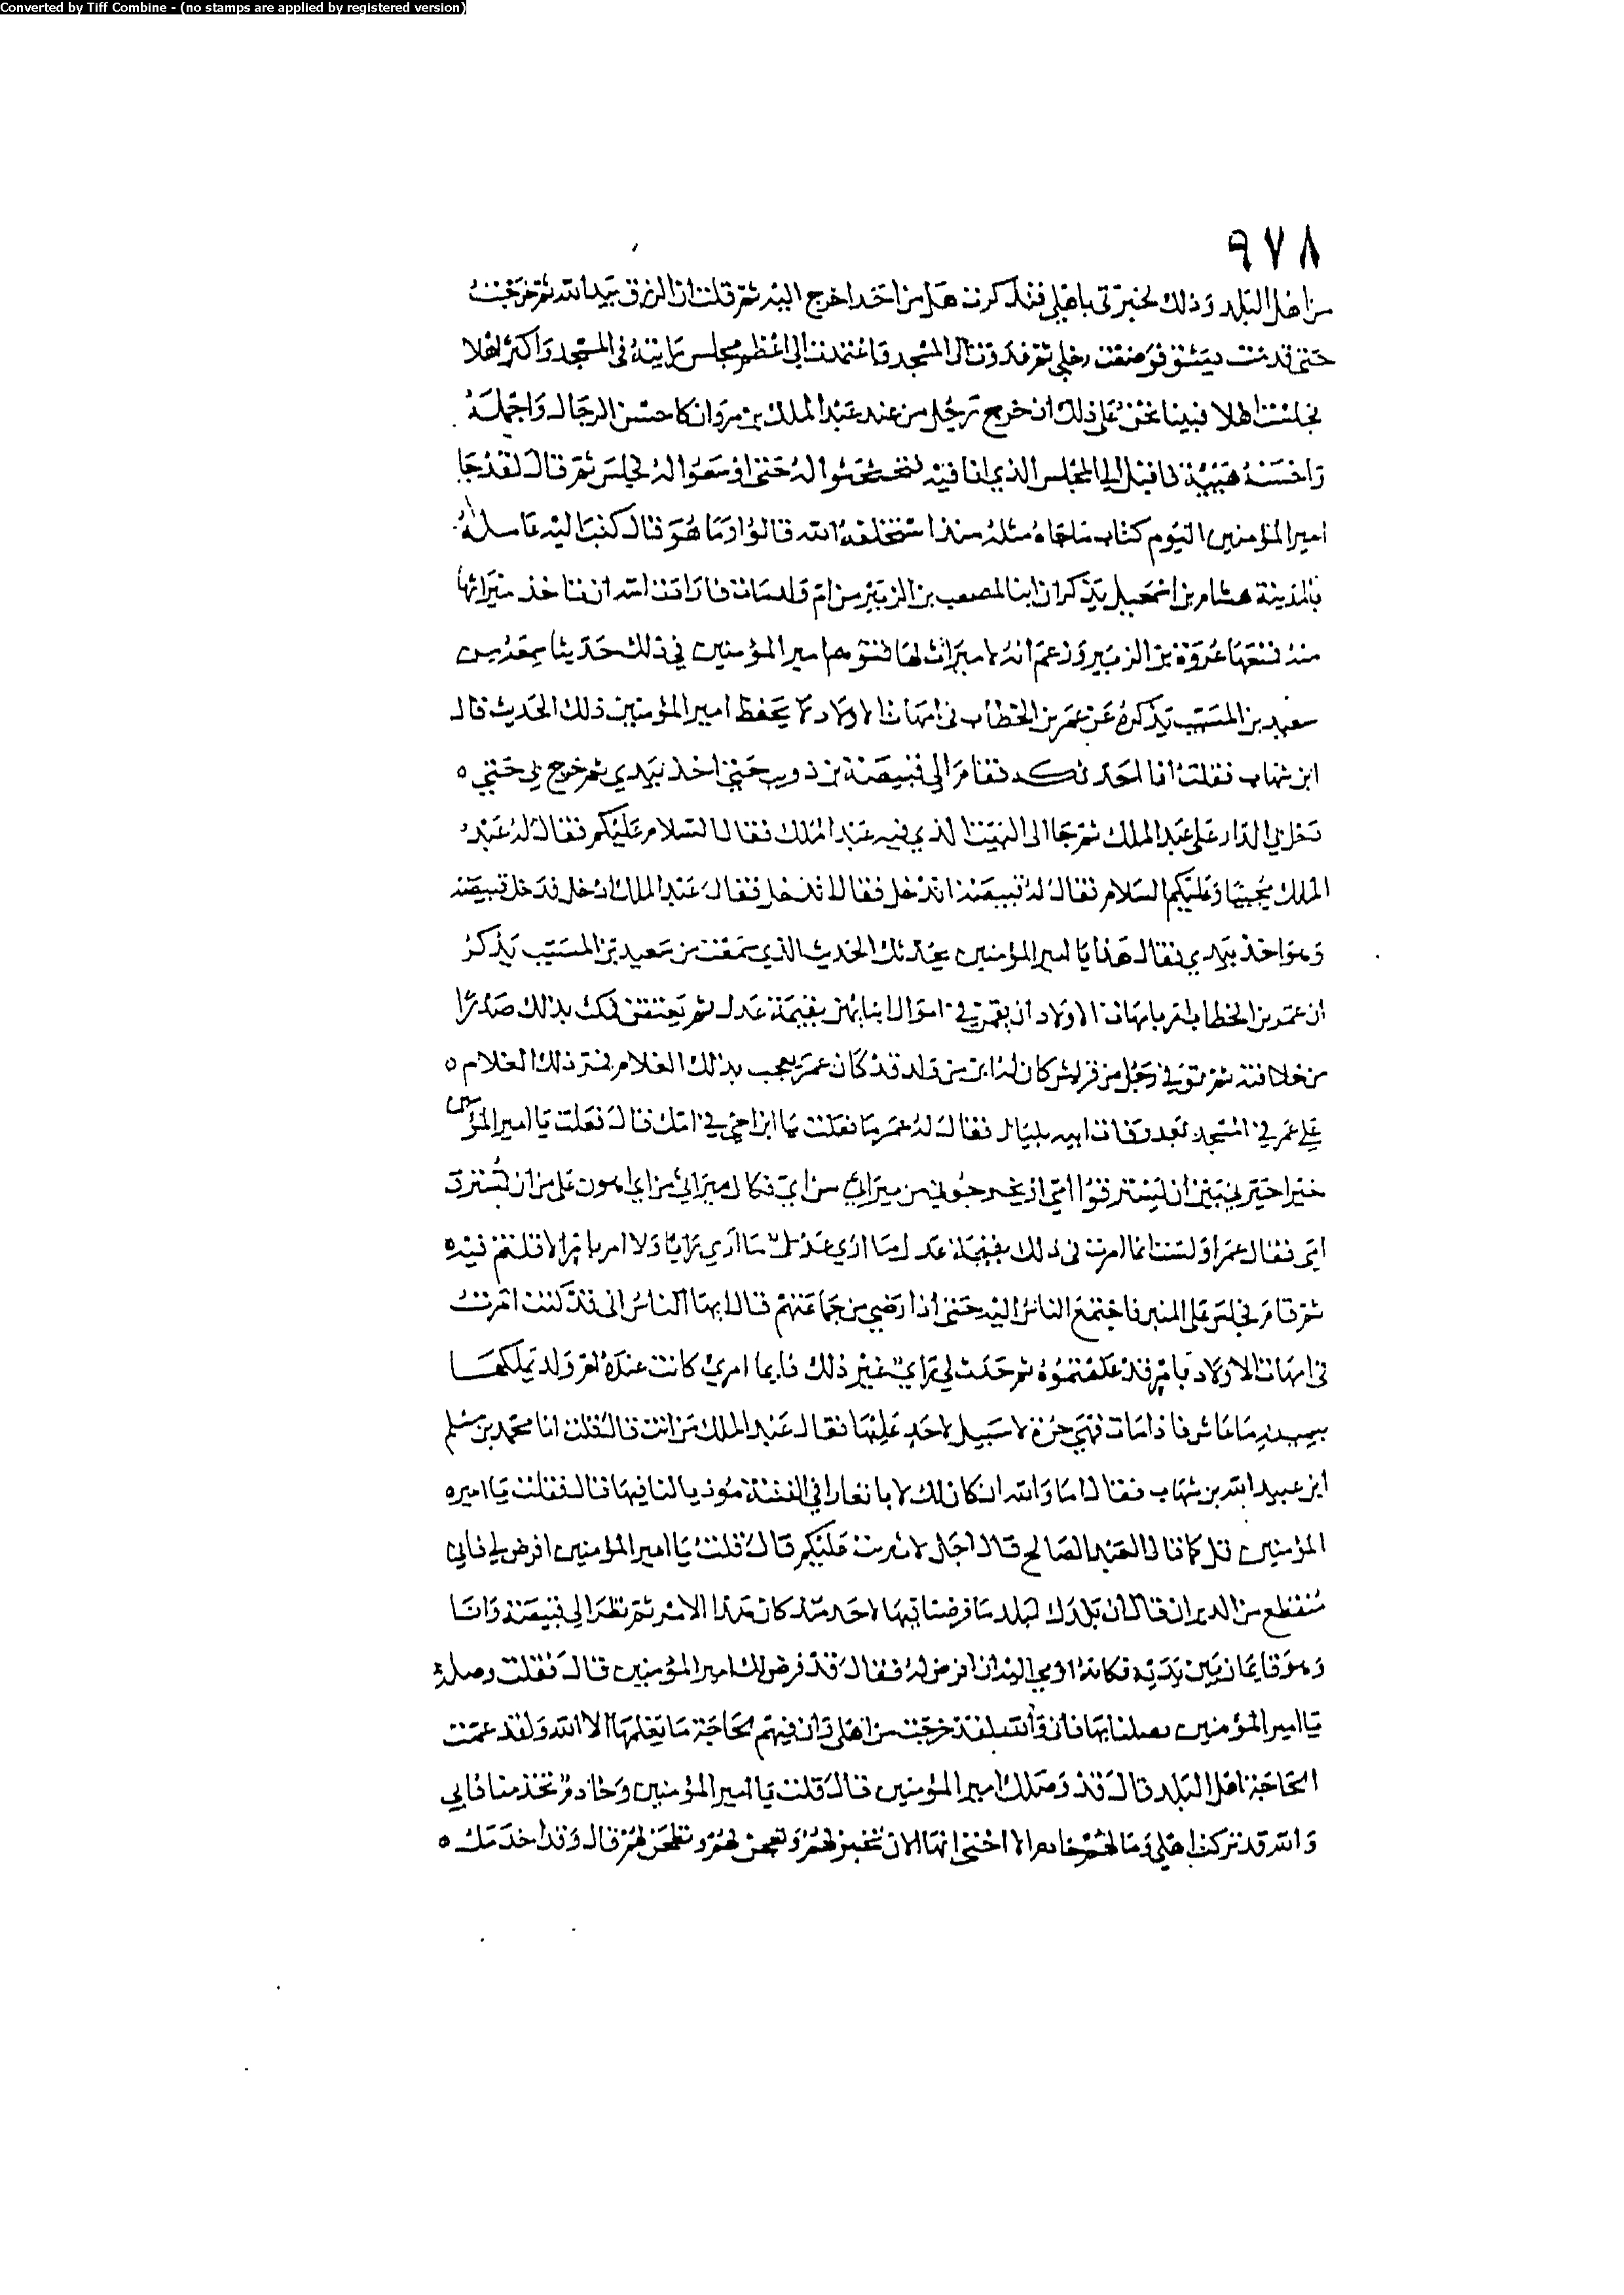 Converted by Tiff Combine - (no stamps are applied by registered version)
٩٧٨
من اهل البلد وذلك لخبرتى باهلى فتذكرت هل من احد اخرج اليه ثم قلت ان الرزق بيد الله ثم خرجت
حتى قدمت دمشق فوضعت رحلى ثم غدوت الى المسجد فاعتمدت الى اعظم مجلس رايته فى المسجد واكثره اهلا
فجلست اهلا فبينا نحن على ذلك اذ خرج رجل من عند عبد الملك بن مروان كاحسن الرجال واجمله
واحسنه هيئة فاقبل الى المجلس الذي انا فيه فتحثحثوا له حتى اوسعوا له فجلس ثم قال لقد جا
امير المؤمنين اليوم كتاب ماجاه مثله منذ استخلفه الله قالوا وما هو قال كتب اليه عامله
بالمدينة هشام بن اسمعيل يذكر ان ابنا لمصعب بن الزبير من ام ولد مات فارادت امه ان تاخذ ميراثها
منه فمنعها عروة بن الزبير وزعم انه لا ميراث لها فتوهم امير المؤمنين في ذلك حديثا سمعه من
سعيد بن المسيب يذكره عن عمر بن الخطاب فى امهات الاولاد لا يحفظ امير المؤمنين ذلك الحديث قال
ابن شهاب فقلت انا احدثكه فقام الي قبيصة بن ذويب حتى اخذ بيدي ثم خرج بي حتى ه
دخل بي الدار على عبد الملك ثم جا الى البيت الذي فيه عبد الملك فقال السلام عليكم فقال له عبد
الملك مجيبا وعليكم السلام فقال له قبيصة اندخل فقال فقال عبد الملك ادخل فدخل قبيصة
وهو اخذ بيدي فقال هذا يا امير المؤمنين يحدثك الحديث الذي سمعت من سعيد بن المسيب يذكر
ان عمر بن الخطاب امر بامهات الاولاد ان يقمن في اموال ابنائهن بقيمة عدل ثم يعتقن فمكث بذلك صدرا
من خلافته ثم توفي رجل من قريش كان له ابن من ام ولد قد كان عمر يعجب بذلك الغلام فمر ذلك الغلام ه
على عمر في المسجد بعد وفاة ابيه بليال فقال له عمر ما فعلت يا ابن اخي في امك قال فعلت يا امير المؤمنين
خيرا خيروني بين ان يسترقوا امي او يخرجوني من ميراثي من ابي فكان ميراثي من ابي اهون على من ان تسترق
امى فقال عمر اولست انما امرت فى ذلك بقيمة عدل ما اري رايا ولا امر بامر الا قلتم فيه ه
ثم قام فجلس على المنبر فاجتمع الناس اليه حتى اذا رضي من جماعتهم قال ايها الناس انى قد كنت امرت
فى امهات الاولاد بامر قد علمتموه ثم حدث لي راي غير ذلك فايما امري كانت عنده ام ولد يملكها
بيمينه ما عاش فاذا مات فهي حرة لا سبيل لاحد عليها فقال عبد الملك من انت قال قلت انا محمد بن مسلم
ابن عبيد الله بن شهاب فقال اما والله ان كان لك لابا نعارا في الفتنة موذيا لنا فيها قال فقلت يا امير ه
المؤمنين قل كما قال العبد الصالح قال اجل لا تثريب عليكم قال قلت يا امير المؤمنين افرض لي فاني
منقطع من الديوان فقال ان بلدك لبلد ما فرضنا فيها لاحد منذ كان هذا الامر ثم نظر الى قبيصة وانا
وهو قايمان بين يديه فكانه اومى اليه ان افرض له فقال قد فرض لك امير المؤمنين قال فقلت وصلة
يا امير المؤمنين تصلنا بها فانى والله لقد خرجت من اهلى وان فيهم لحاجة ما يعلمها الا الله ولقد عمت
الحاجة اهل البلد قال قد وصلك امير المؤمنين قال قلت يا امير المؤمنين وخادم تخدمنا فاني
والله قد تركت اهلي وما لهم خادم الا اختى انها الان تخبز لهم وتعجن لهم وتطحن لهم قال وقد اخدمك ه